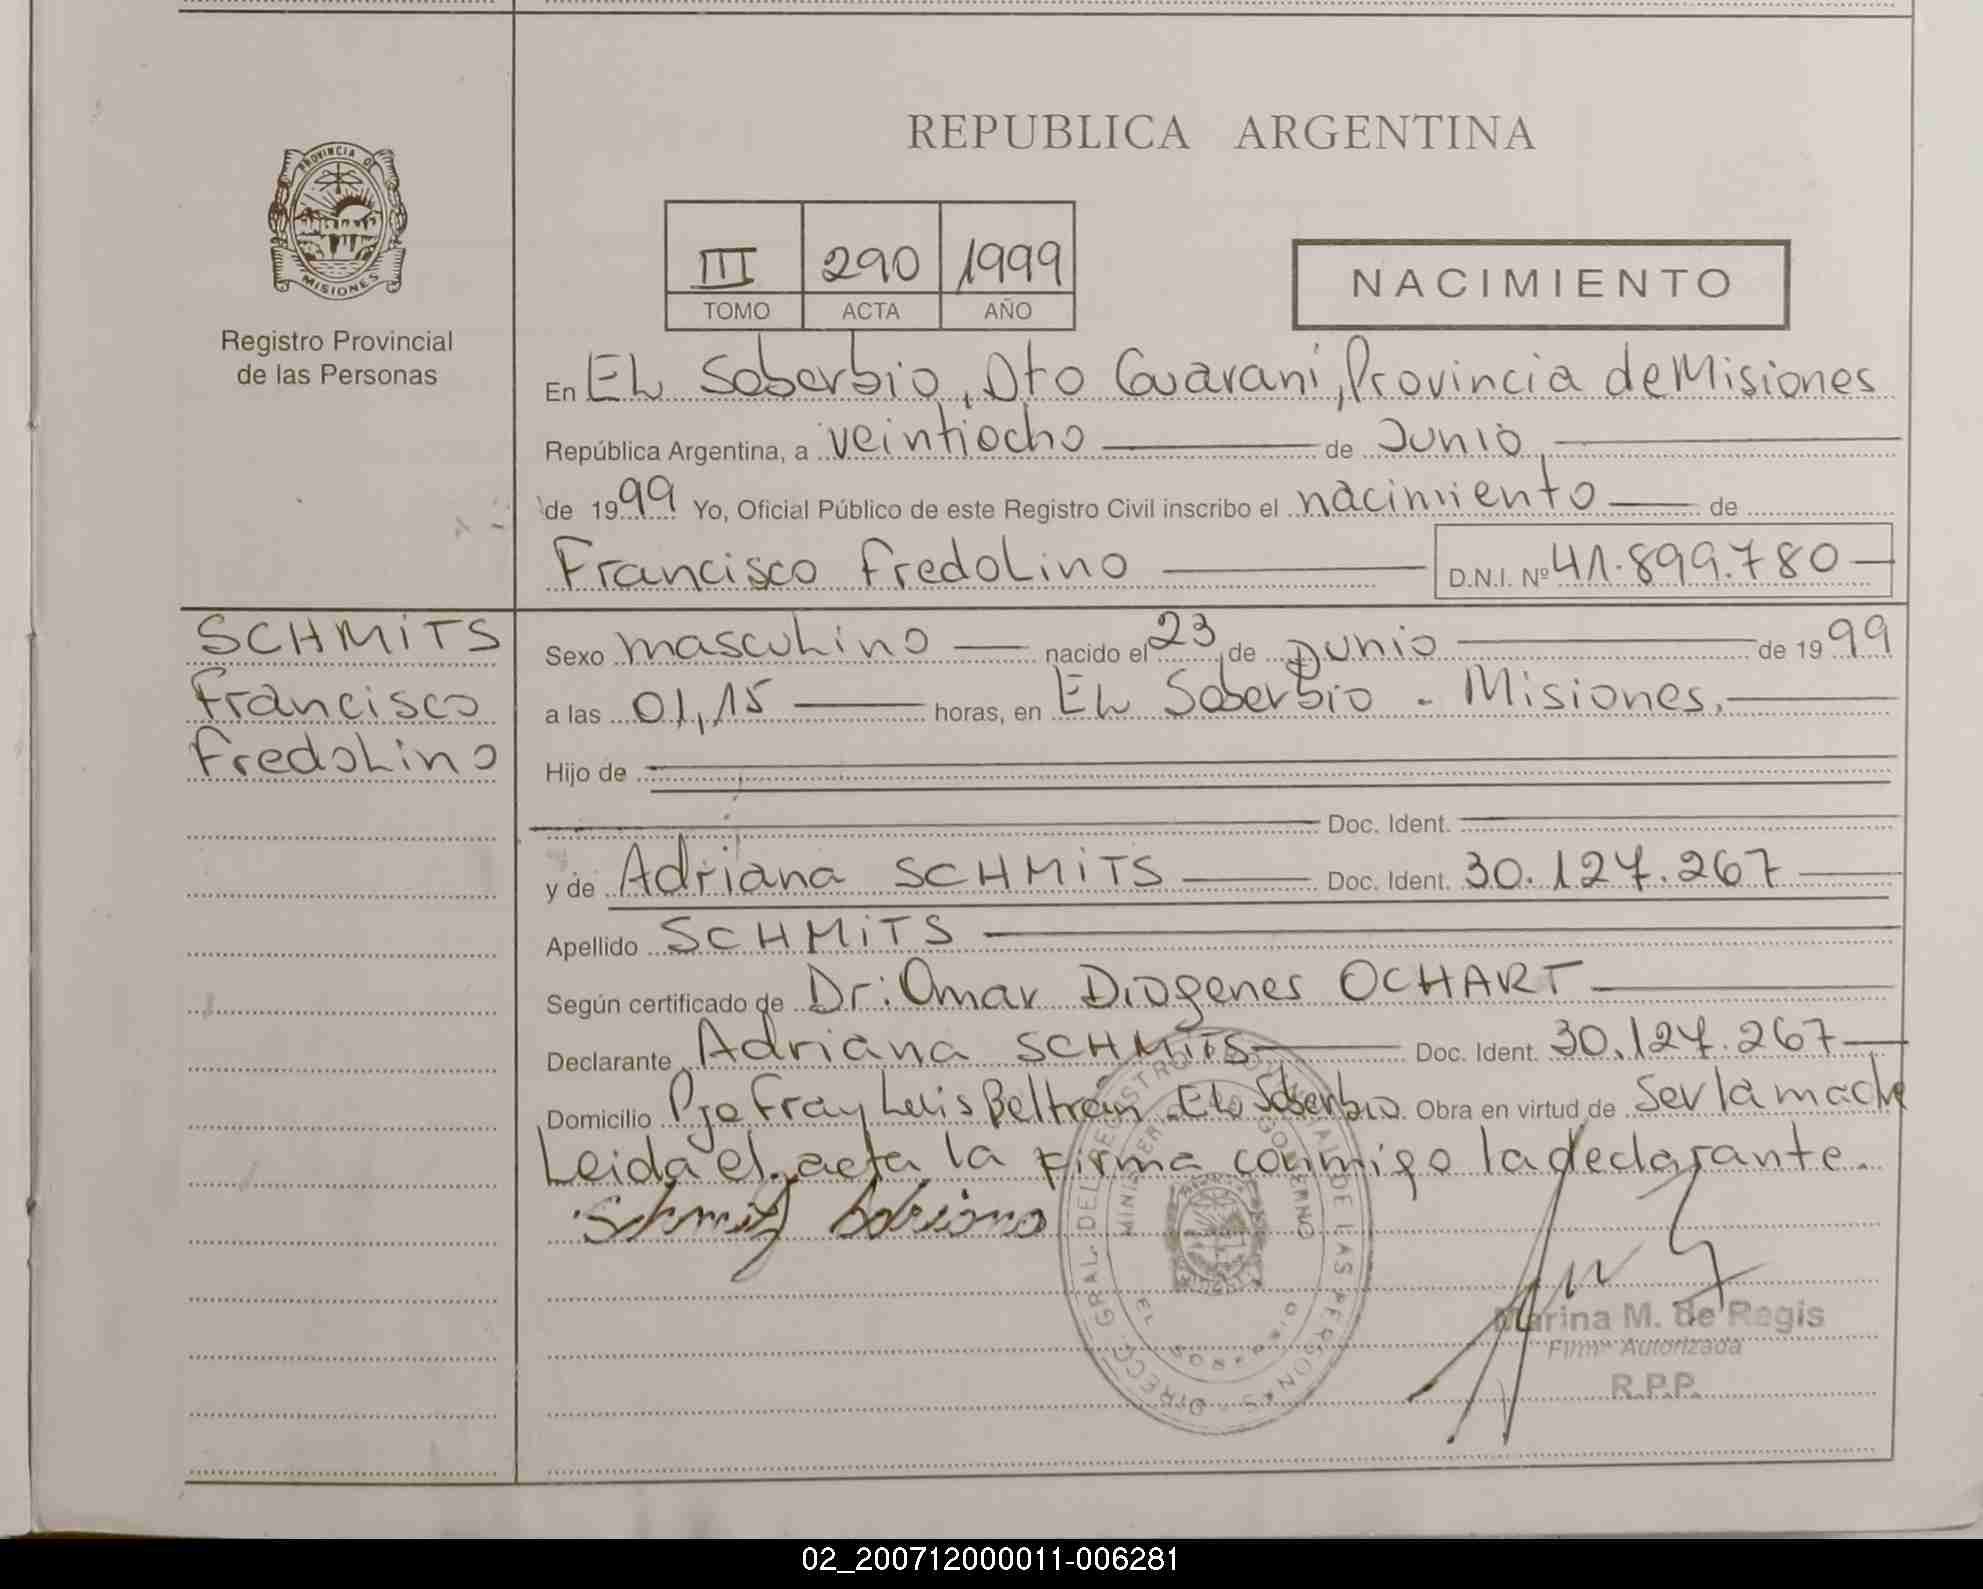 REPUBLICA ARGENTINA
PROVINCIA DE
MISIONES
Registro Provincial
de las Personas
III 290 1999
TOMO ACTA AÑO
NACIMIENTO
En EL Soberbio, Dto Guarani, Provincia de Misiones
República Argentina, a veintiocho de Junio
de 1999 Yo, Oficial Público de este Registro Civil inscribo el nacimiento de
Francisco FredoLino D.N.I. Nº 41.899.780
SCHMiTS
Francisco
FredoLino
Sexo mascuLino nacido el 23 de Junio de 1999
a las 01,15 horas, en EL Soberbio - Misiones.
Hijo de
Doc. Ident.
y de Adriana SCHMiTS Doc. Ident. 30.127.267
Apellido SCHMiTS
Según certificado de Dr: Omar Diogenes OCHART
Declarante Adriana SCHMiTS Doc. Ident. 30.127.267
Domicilio Pje Fray Luis Beltrán EL Soberbio. Obra en virtud de Ser la madre
Leida el acta la firma conmigo la declarante.
Schmits Adriana
DIRECC. GRAL. DEL REGISTRO PROVINCIAL DE LAS PERSONAS
MINISTERIO DE GOBIERNO
EL SOBERBIO
Marina M. de Regis
Firma Autorizada
R.P.P.
02_200712000011-006281